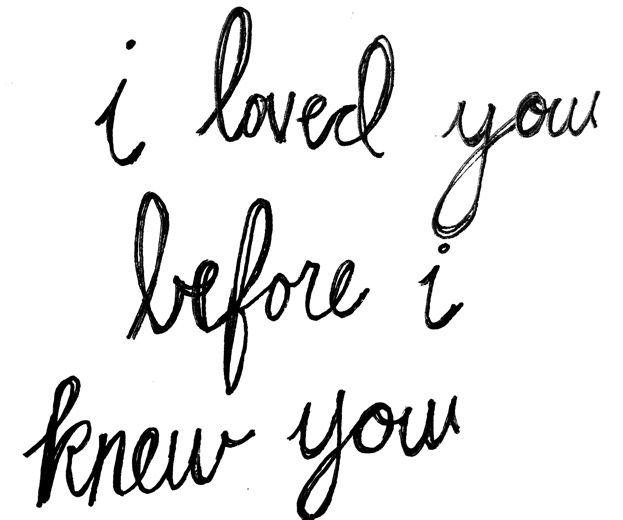 i loved you
before i
knew you